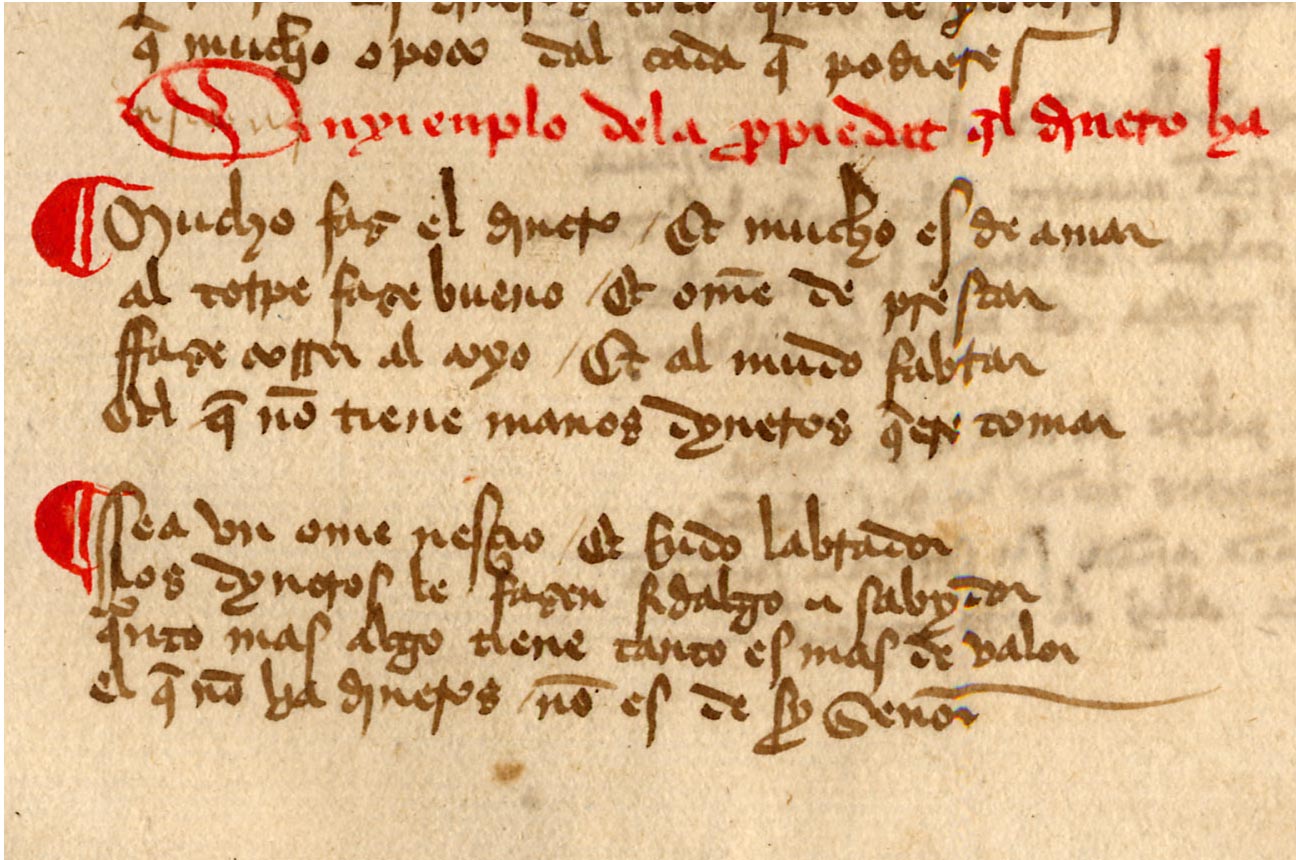 q̃ mucho o poco dal cada q̃ podieres
Enxienplo dela propiedat q̃l dinero ha
Mucho faz el dinero / Et mucho es de amar
al torpe faze bueno / Et om̃e de prestar
ffaze correr al coxo / Et al mudo fablar
El q̃ nõ tiene manos dyneros quiere tomar
ssea vn ome nesçio / Et rrudo labrador
llos dyneros le fazen fidalgo e sabydor
q̃nto mas algo tiene tanto es mas de valor
el q̃ nõ ha dineros / nõ es de sy Señor